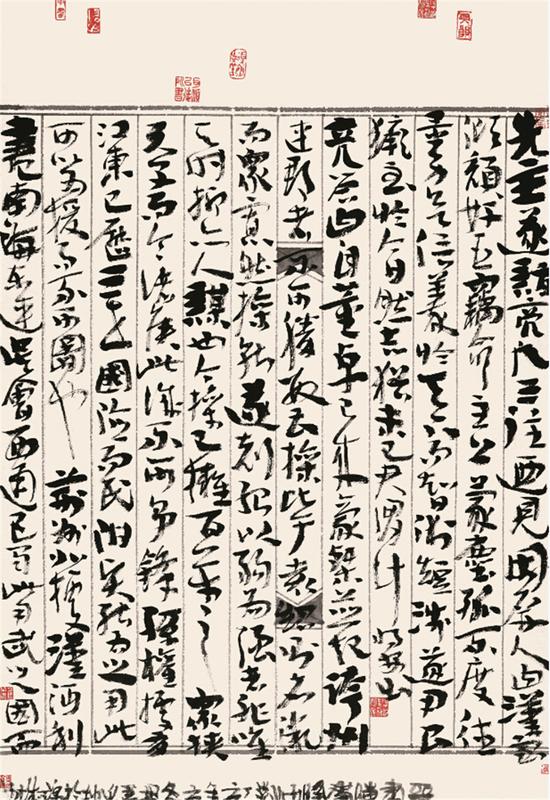 先主遂詣亮凡三往迺見因屏人曰漢室
傾頹奸臣竊命主上蒙塵孤不度德
量力欲信義於天下而智術短淺遂用
獗至於今日然志猶未已君謂計將安出
亮答曰自董卓已來豪傑並起跨州
連郡者不可勝數曹操比于袁紹則名微
而衆寡然操能遂剋紹以弱為強者非唯
天時抑亦人謀也今操已擁百萬之衆挾
天子而令諸侯此誠不可爭鋒孫權據有
江東已歷三世國險而民附賢能為之用此
可以為援而不可圖也荊州北據漢沔利
盡南海東連吳會西通巴蜀此用武之國而